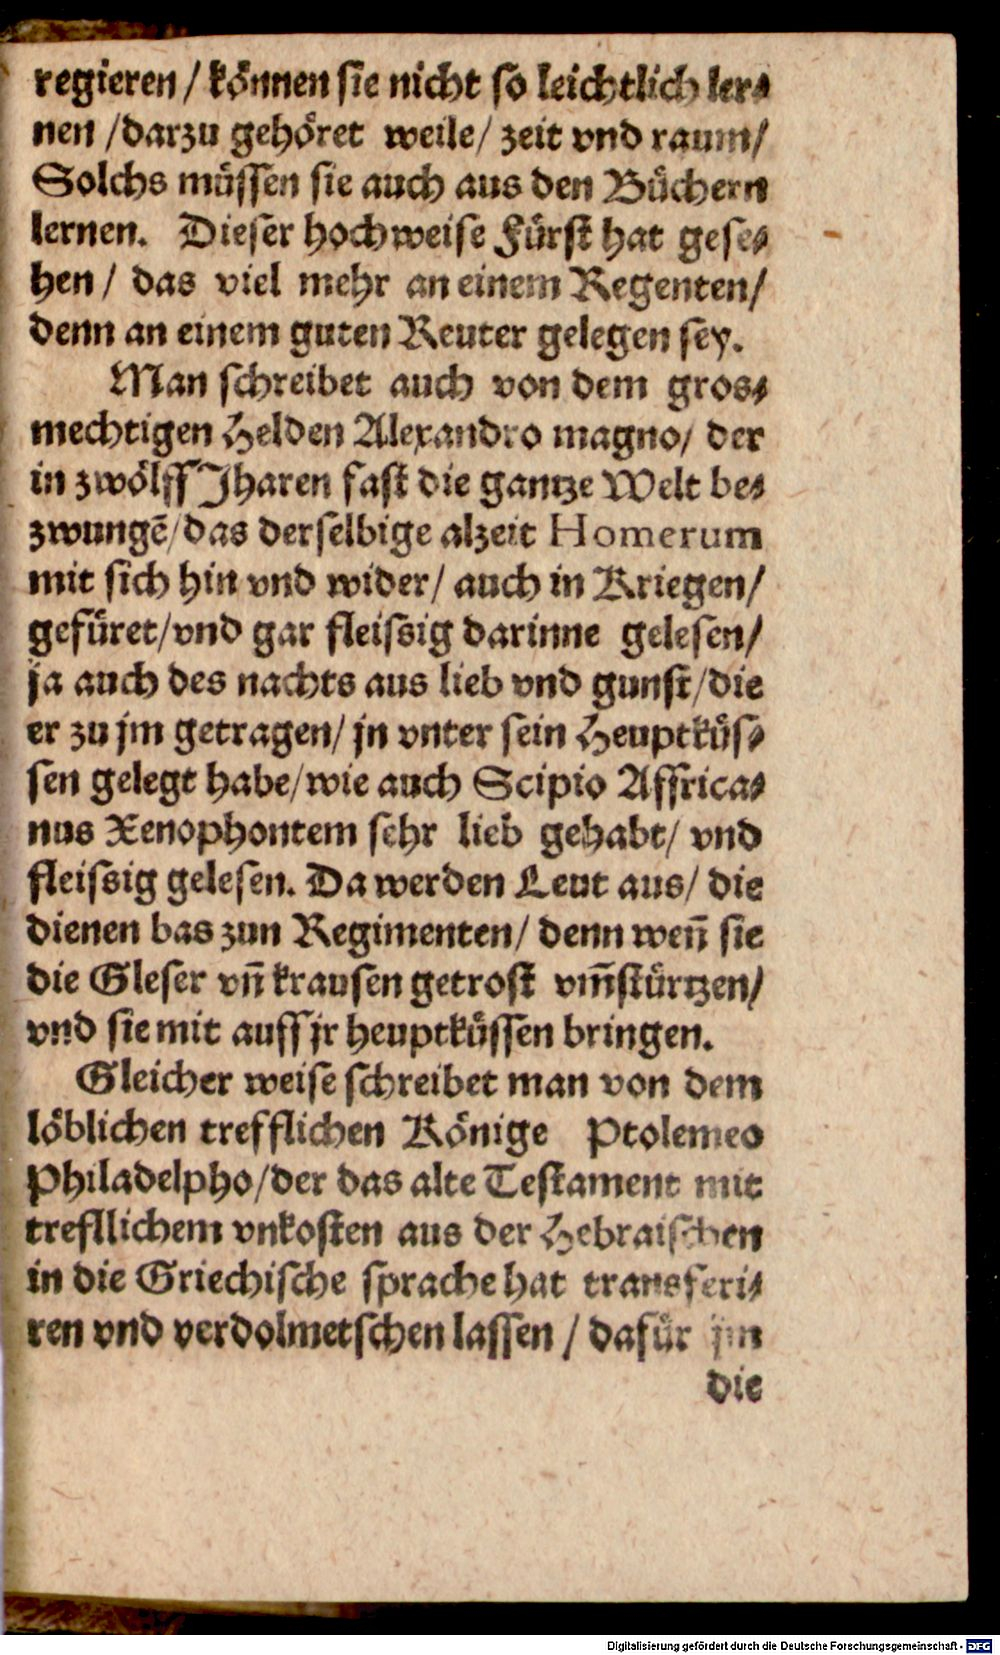 regieren / können sie nicht so leichtlich ler⸗
nen /darzu gehöret weile/ zeit vnd raum/
Solchs müssen sie auch aus den Büchern
lernen. Dieser hochweise Fürst hat gese⸗
hen / das viel mehr an einem Regenten/
denn an einem guten Reuter gelegen sey.
Man schreibet auch von dem gros⸗
mechtigen Helden Alexandro magno/ der
in zwölff Jharen fast die gantze Welt be⸗
zwungē/das derselbige alzeit Homerum
mit sich hin vnd wider/ auch in Kriegen/
gefüret/vnd gar fleissig darinne gelesen/
ja auch des nachts aus lieb vnd gunst/die
er zu jm getragen/ jn vnter sein Heuptküs⸗
sen gelegt habe/wie auch Scipio Affrica⸗
nus Xenophontem sehr lieb gehabt/ vnd
fleissig gelesen. Da werden Leut aus/ die
dienen bas zun Regimenten/ denn weñ sie
die Gleser vñ krausen getrost vm̄stürtzen/
vnd sie mit auff jr heuptküssen bringen.
Gleicher weise schreibet man von dem
löblichen trefflichen Könige Ptolemeo
Philadelpho/der das alte Testament mit
trefllichem vnkosten aus der Hebraischen
in die Griechische sprache hat transferi⸗
ren vnd verdolmetschen lassen / dafür jm
die
Digitalisierung gefördert durch die Deutsche Forschungsgemeinschaft - DFG